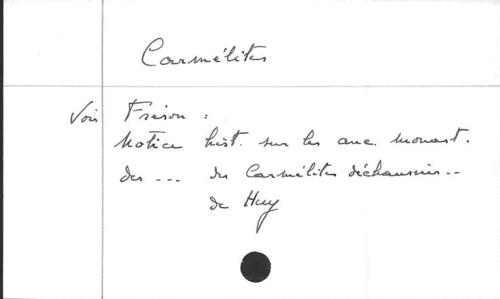 Carmélites
Voir Fréson :
Notice hist. sur les anc. monast.
des --- des Carmélites déchaussées --
de Huy